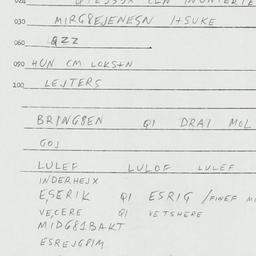 030 MIRG8EJENESN /+SUKE
060 QZZ
090 HUN CM LOKS+N
100 LEJTERS
BRINGBEN QI DRAJ MOL
GOJ
LULEF LULOF LULEF
INDERHEJX
ESERIK QI ESRIG /FINEF
VE,CERE QI VETSHERE
MIDG81BAKT
ESREJG8IM